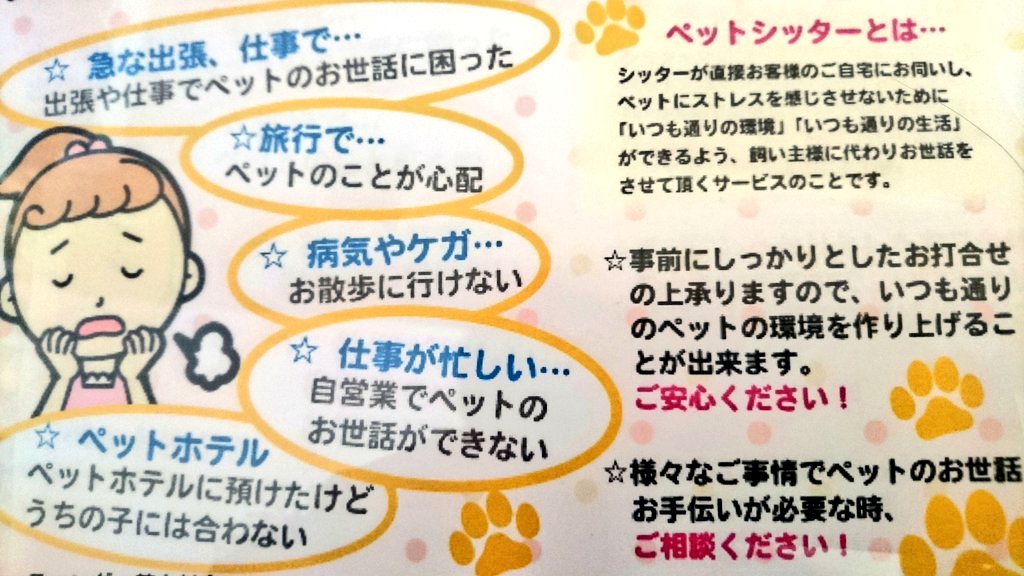 ☆ 急な出張、仕事で…
出張や仕事でペットのお世話に困った
☆旅行で…
ペットのことが心配
☆ 病気やケガ…
お散歩に行けない
☆ 仕事が忙しい…
自営業でペットの
お世話ができない
☆ ペットホテル
ペットホテルに預けたけど
うちの子には合わない
ペットシッターとは…
シッターが直接お客様のご自宅にお伺いし、
ペットにストレスを感じさせないために
「いつも通りの環境」「いつも通りの生活」
ができるよう、飼い主様に代わりお世話を
させて頂くサービスのことです。
☆事前にしっかりとしたお打合せ
の上承りますので、いつも通り
のペットの環境を作り上げるこ
とが出来ます。
ご安心ください！
☆様々なご事情でペットのお世話
お手伝いが必要な時、
ご相談ください！